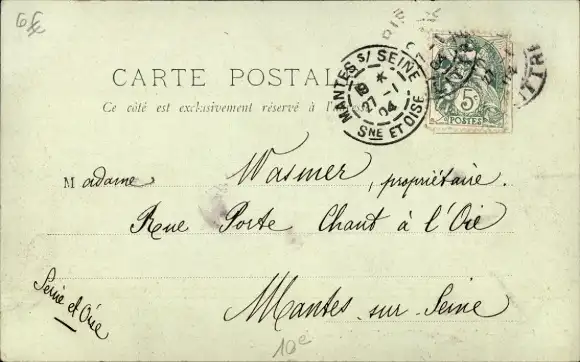 CARTE POSTALE
Ce côté est exclusivement réservé à l'
MANTES S/ SEINE
27 - 1
04
SNE ET OISE
5c
POSTES
Madame Wasmer, propriétaire.
Rue Porte Chant à l'Oie
Mantes-sur-Seine
Seine et Oise
10e